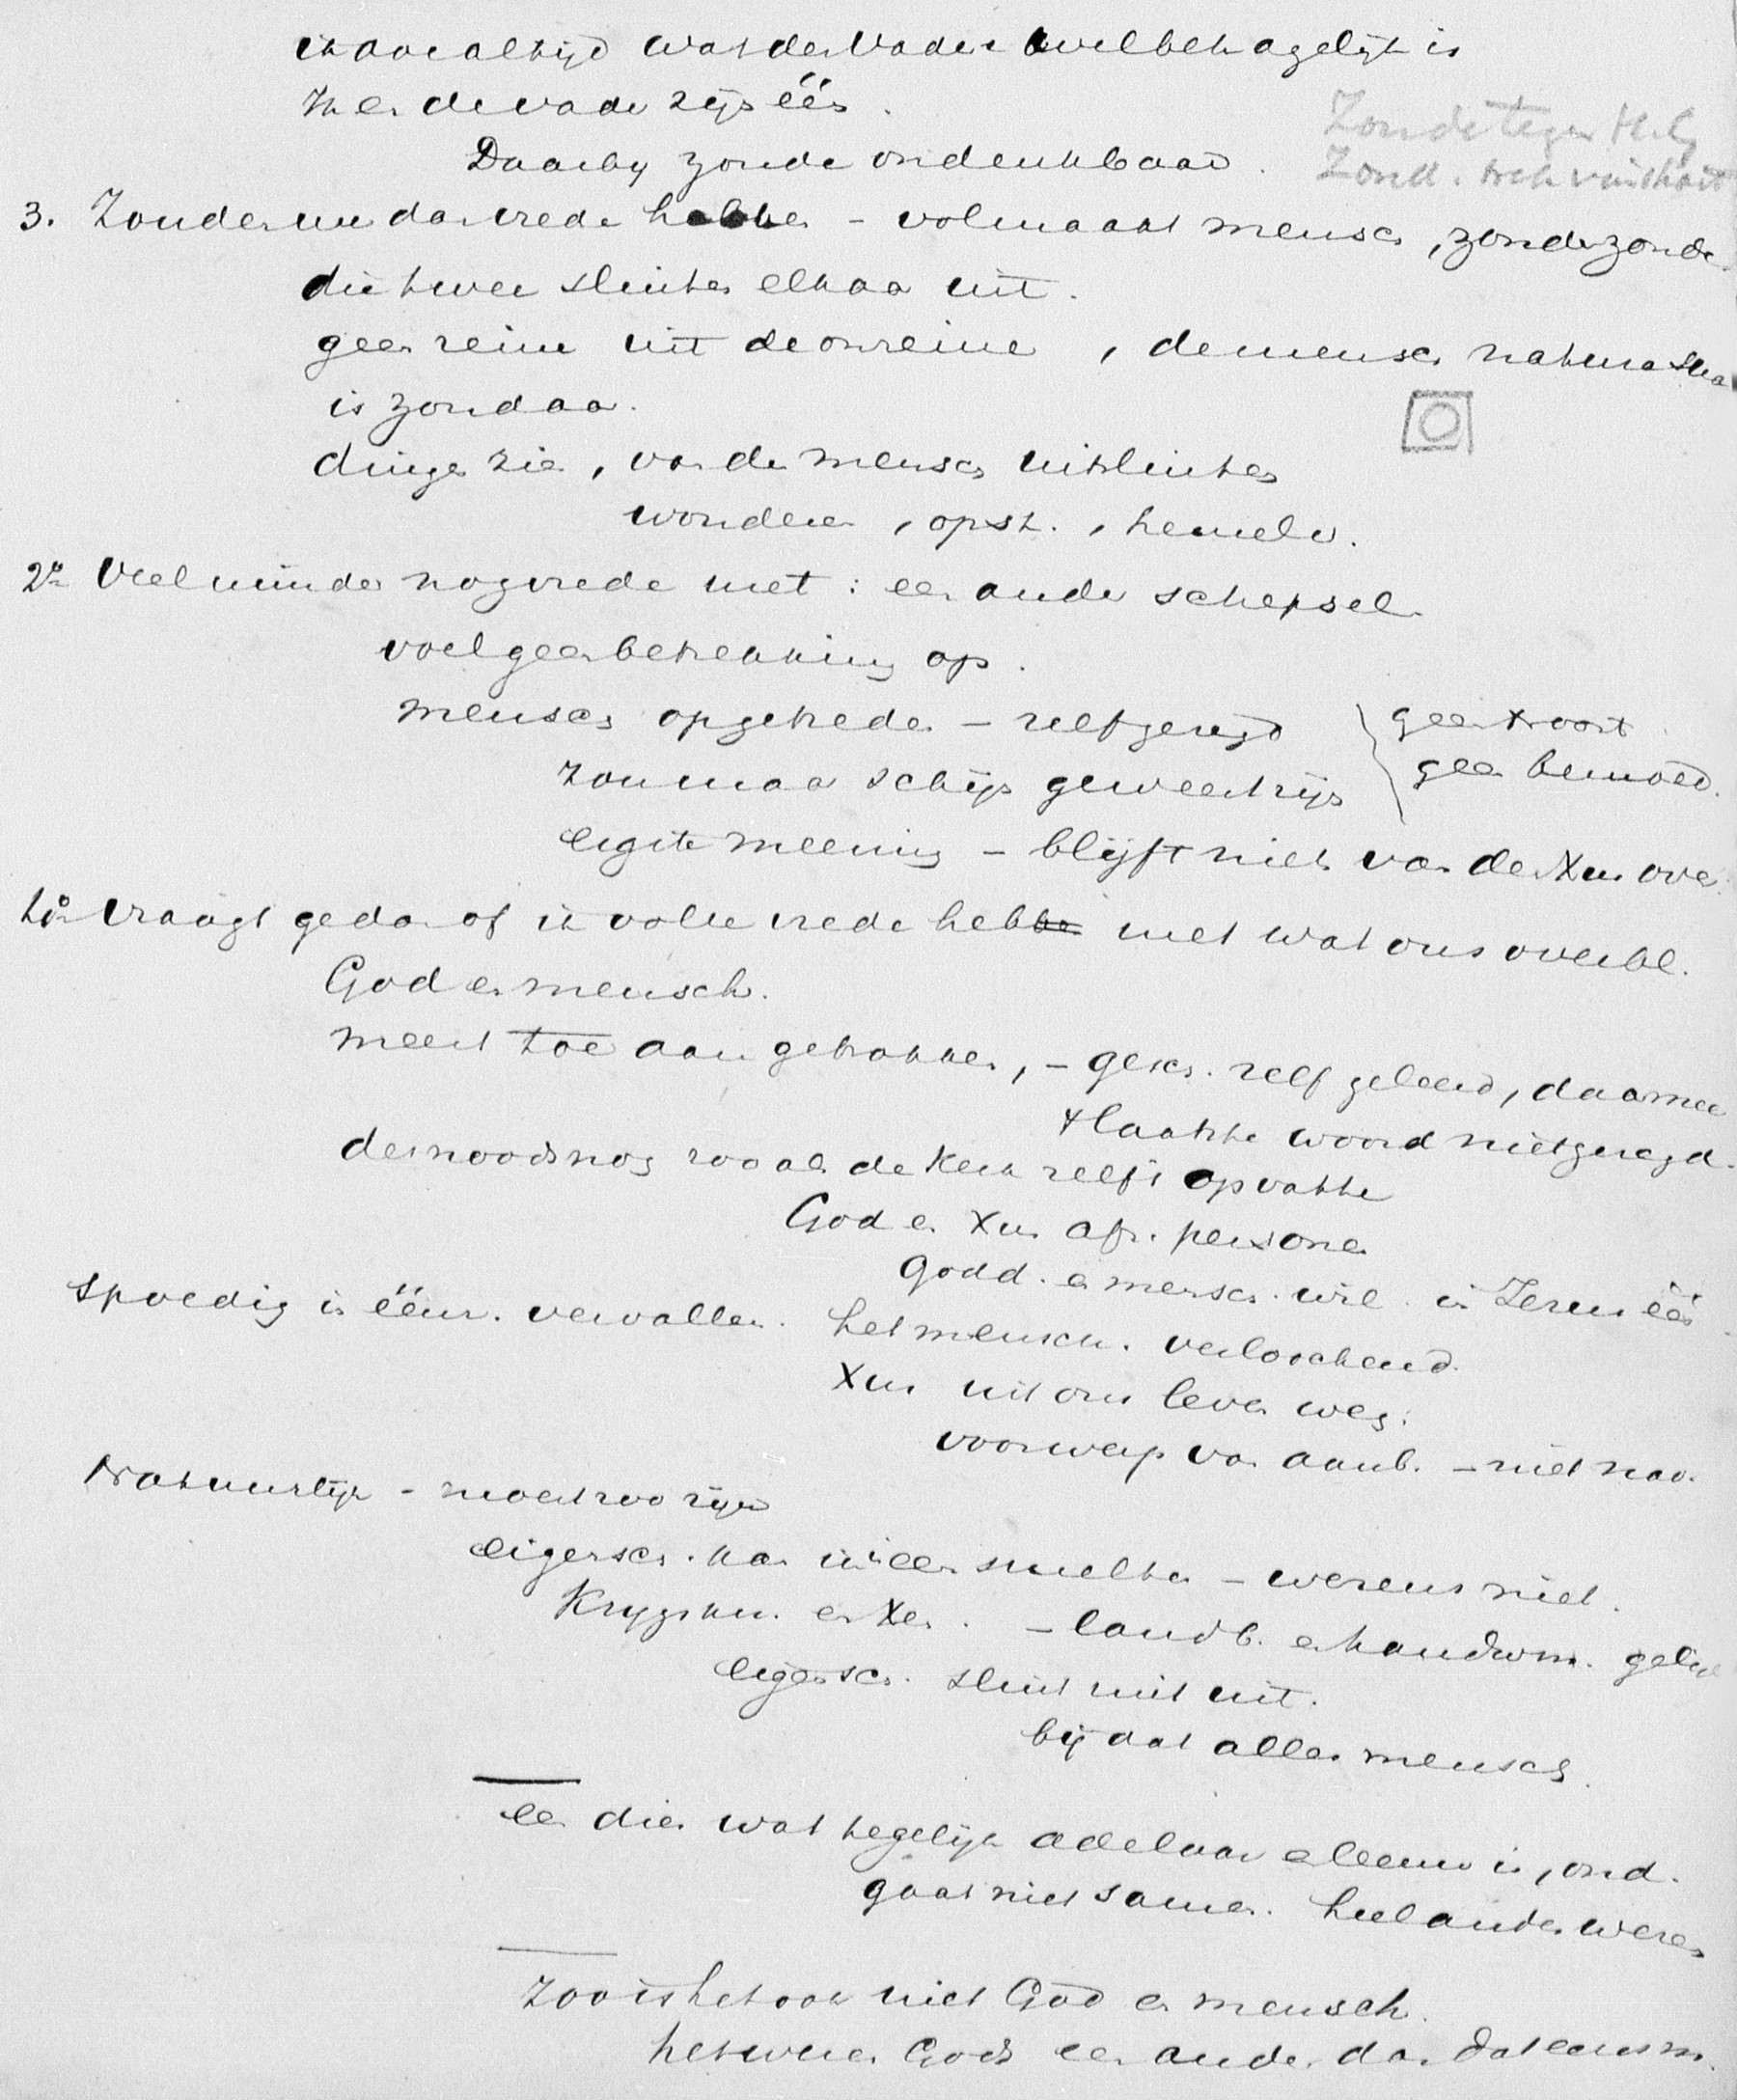 ik doe altijd wat den Vader welbehagelijk is
Ik en de vader zijn één.
Daarbij zonde ondenkbaar.
Zonde tegen H. G.
Zond.
3. Zouden we dan vrede hebben - volmaakt mensch, zonder zonde
die twee sluiten elkaar uit.
geen reine uit de onreine, de mensch natura sua
is zondaar.
dingen zien, van den mensch uitsluiten
wonderen, opst., hemelv.
2o Veel minder nog vrede met: een ander schepsel
voel geen betrekking op.
mensch opgetreden - zelf gezegd
geen troost
zou maar schijn geweest zijn
geen bemoed.
legite meening - blijft niets van den Xus over.
1o Vraagt ge dan of ik volle vrede heb met wat ons overbl.
God en mensch.
meest toe aangetrokken, - gesch. zelf geleerd, daarmee
laatste woord niet gezegd.
desnoods nog zooals de Kerk zelf 't opvatte
God en Xus afz. personen
Godd. en mensch. wil in Jezus één
Spoedig is éénh. vervallen. het mensch. verloochend.
Xus uit ons leven weg.
voorwerp van aanb. - niet nav.
Natuurlijk - moest zoo zijn
eigensch. kan ineen smelten - wezens niet.
Krijgskn. en Xen. - landb. en handwm. gelijk
eigensch. sluit niet uit.
bij dat alles mensch.
een dier wat tegelijk adelaar en leeuw is, ond.
gaat niet samen. heel ander wezen
zoo is het ook met God en mensch.
het wezen Gods een ander dan dat eens m.